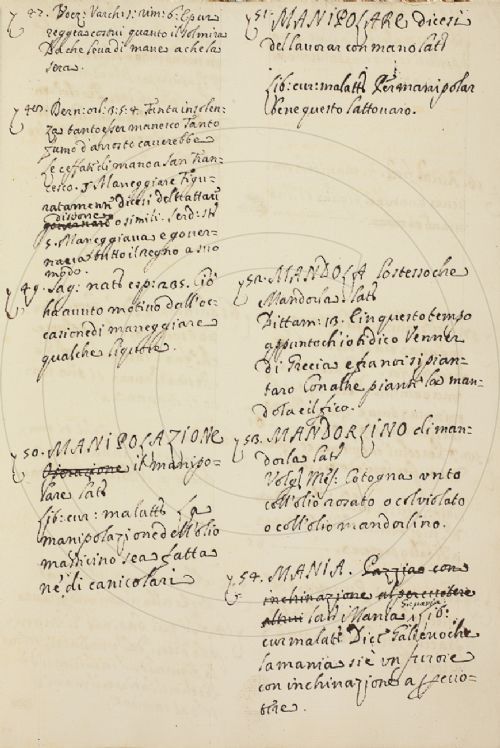 47. Poez: Varchi: rim: 6: E pur
reggia costui quanto il sol mira
Da che leva di mane a che la
sera.
48. Bern: orl: 3: 5: 4. Tanta insolen-
za tanto esser manesco Tanto
fumo d'arrosto caverebbe
Le ceffate di mano a San Fran-
cesco. § Maneggiare Figu-
ratamente dicesi del trattare
disporre
o simili. Serd: st:
5. Maneggiava e gover-
nava tutto il Regno a suo
modo.
49. Sag: nat: esp: 235. Ciò
ha avuto motivo dall'oc-
casione di maneggiare
qualche liquore.
50. MANIPOLAZIONE
Operazione il manipo-
lare lat:
Lib: cur: malatt: La
manipolazione dell'olio
masticino sea fatta
ne' dì canicolari
51. MANIPOLARE dicesi
del lavorar con mano lat:
Lib: cur: malatt: Per manipolar
bene questo lattovaro.
52. MANDOLA Lo stesso che
Mandorla lat:
Dittam: 13. In questo tempo
appunto ch'io ti dico Venner
di Grecia e fra noi si pian-
taro Con altre piante la man-
dola e il fico.
53. MANDORLINO di man-
dorla lat:
Volg: Mes: Cotogna unto
coll'olio rosato o col violato
o coll'olio mandorlino.
54. MANIA. Pazzia con
inchinazione al percuotere
altrui lat: Mania Lib:
cur malatt: Dice Galieno che
la mania si è un furore
con inchinazione a percuo-
tere.